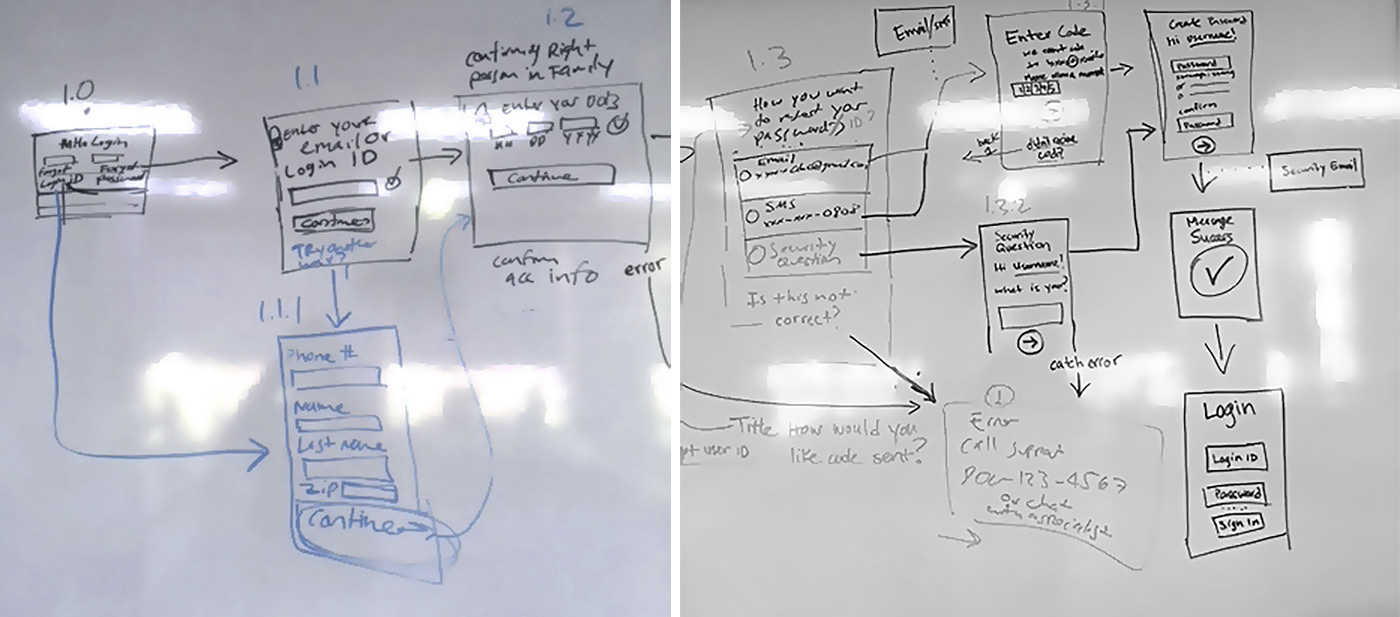 1.0
Login
Forgot
Login ID
Forgot
Password
1.1
enter your
email or
Login ID
Continue
Try another
way?
1.1.1
Phone #
Name
Last name
Zip
Continue
1.2
confirming Right
person in Family
enter your DOB
MM DD YYYY
Continue
confirm
acc info
error
1.3
How you want
to restart your
password/ID?
Email
SMS
xxx-xxx-0808
Security
Question
Is this not
correct?
Title How would you
like code sent?
user ID
Email/SMS
Enter Code
we sent code
12345
back
didnt receive
code?
1.3.2
Security
Question
Hi Username!
what is your?
catch error
1
Error
Call Support
800-123-4567
Or chat
with a specialist
Create Password
Hi Username!
Password
confirm
Password
Security Email
Message
Success
Login
Login ID
Password
Sign In